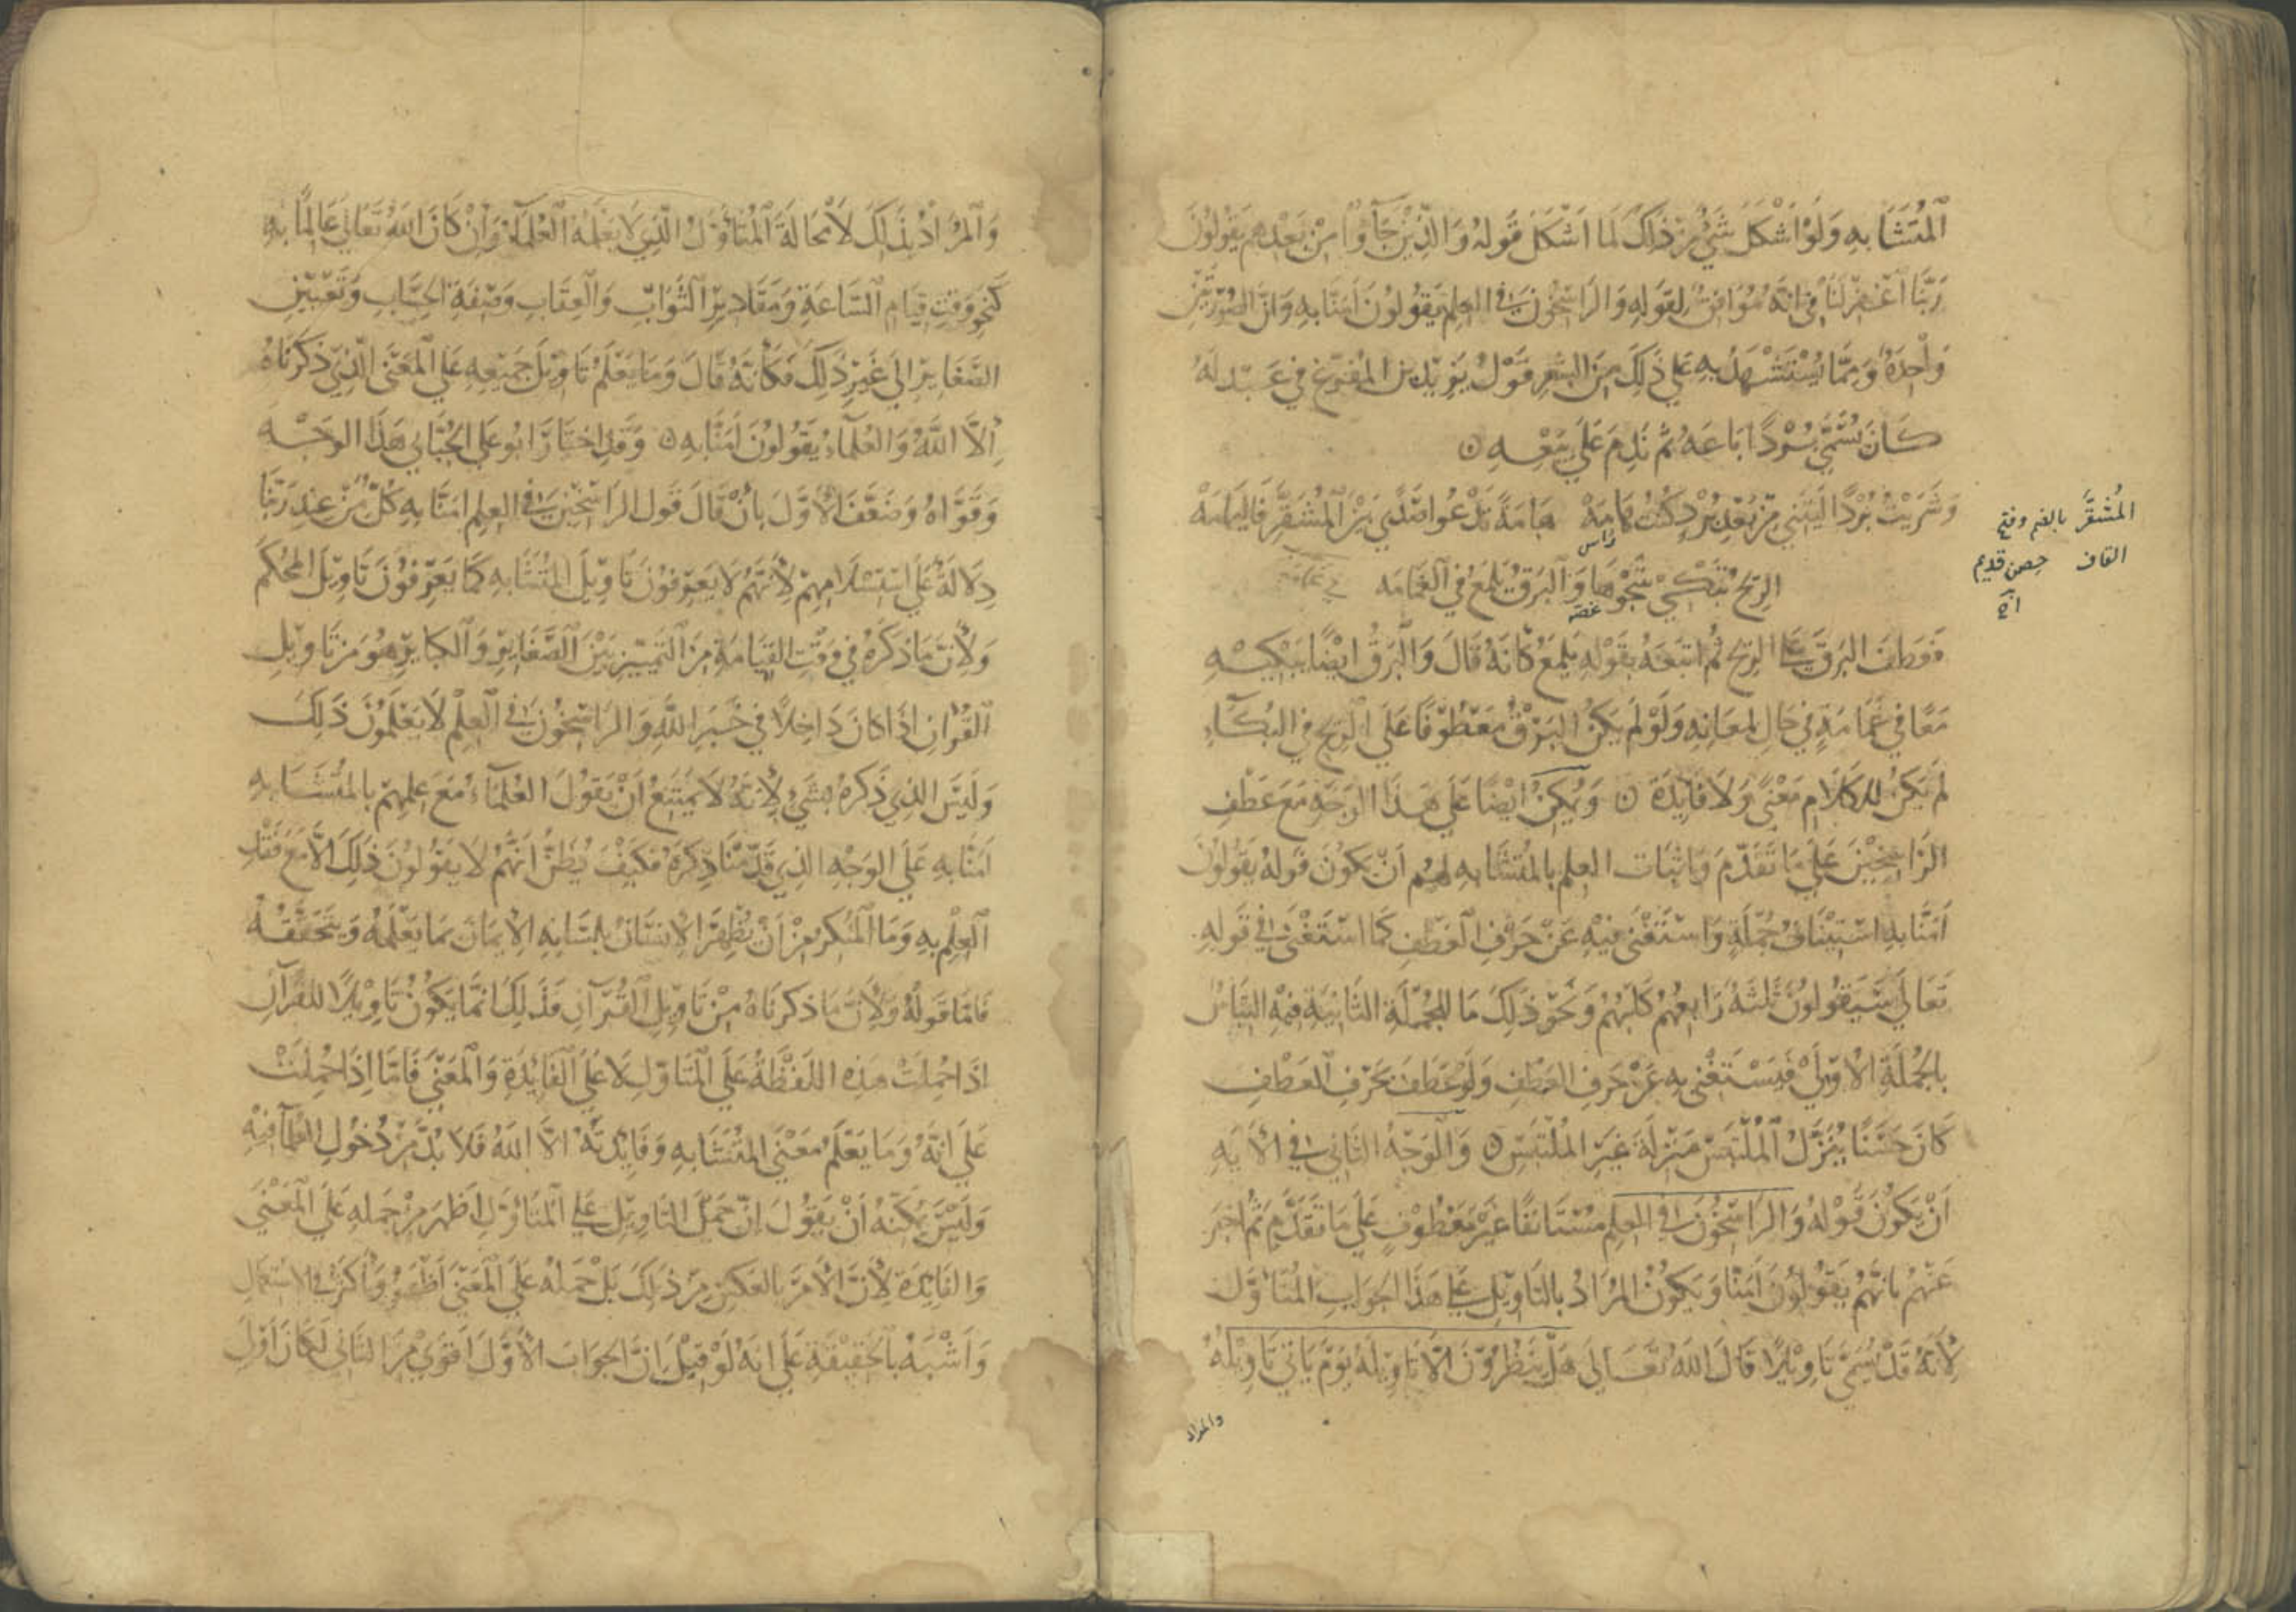 المتشابه ولو اشكل شي من ذلك لما اشكل قوله والذين جاؤا من بعدهم يقولون
ربنا اغفر لنا في انه موافق لقوله والراسخون في العلم يقولون امنا به وان الصورتين
واحدة ومما يستشهد به على ذلك من الشعر قول يزيد بن المفرغ في عبد له
كان يسمى بردا باعه ثم ندم على بيعه
وشريت بردا ليتني من بعد برد كنت هامه هامة تدعوا صدي بين المشقر فاليمامه
راس
المشقر بالضم وفتح
القاف حصن قديم
الريح تبكي شجوها والبرق يلمع في الغمامه
غصة
فعطف البرق على الريح ثم اتبعه بقوله يلمع كانه قال والبرق ايضا يبكيه
معا في غمامة في حال لمعانه ولو لم يكن البرق معطوفا على الريح في البكاء
لم يكن للكلام معنى ولا فايدة ويمكن ايضا على هذا الوجه مع عطف
الراسخين على ما تقدم واثبات العلم بالمتشابه لهم ان يكون قوله يقولون
امنا به استيناف جملة واستغنى فيه عن حرف العطف كما استغنى في قوله
تعالى سيقولون ثلثة رابعهم كلبهم ونحو ذلك مما للجملة الثانية فيه التباس
بالجملة الاولى فيستغنى به عن حرف العطف ولو عطف بحرف العطف
كان حسنا ينزل الملتبس منزلة غير الملتبس والوجه الثاني في الاية
ان يكون قوله والراسخون في العلم مستانفا غير معطوف على ما تقدم ثم اخبر
عنهم بانهم يقولون امنا ويكون المراد بالتاويل على هذا الجواب المتاول
لانه قد يسمى تاويلا قال الله تعالى هل ينظرون الا تاويله يوم ياتي تاويله
والمراد
والمراد بذلك لا محالة المتاول الذي لا يعلمه العلماء وان كان الله تعالى عالما به
كنحو وقت قيام الساعة ومقادير الثواب والعقاب وصفة الحساب وتعيين
الصغاير الى غير ذلك فكانه قال وما يعلم تاويل جميعه على المعنى الذي ذكرناه
الا الله والعلماء يقولون امنا به وقد اختار ابو علي الجبائي هذا الوجه
وقواه وضعف الاول بان قال قول الراسخين في العلم امنا به كل من عند ربنا
دلالة على استسلامهم لانهم لا يعرفون تاويل المتشابه كما يعرفون تاويل المحكم
ولان ما ذكره في وقت القيامة من التمييز بين الصغاير والكبا يرهو من تاويل
القران اذا كان داخلا في خبر الله والراسخون في العلم لا يعلمون ذلك
وليس الذي ذكره بشي لانه لا يمتنع ان يقول العلماء مع علمهم بالمتشابه
امنا به على الوجه الذي قدمنا ذكره فكيف يظن انهم لا يقولون ذلك الا مع فقد
العلم به وما المنكر من ان يظهر الانسان بلسانه الايمان بما يعلمه ويتحققه
فاما قوله ولان ما ذكرناه من تاويل القرآن فذلك انما يكون تاويلا للقرآن
اذا حملت هذه اللفظة على المتاول لا على الفائدة والمعنى فاما اذا حملت
على انه وما يعلم معنى المتشابه وفايدته الا الله فلا بد من دخول العلماء فيه
وليس يمكنه ان يقول ان حمل التاويل على المتاول اظهر من حمله على المعنى
والفايدة لان الامر بالعكس من ذلك بل حمله على المعنى اظهر واكثر في الاستعمال
واشبه بالحقيقة على انه لو قيل ان الجواب الاول اقوى من الثاني لكان اولى